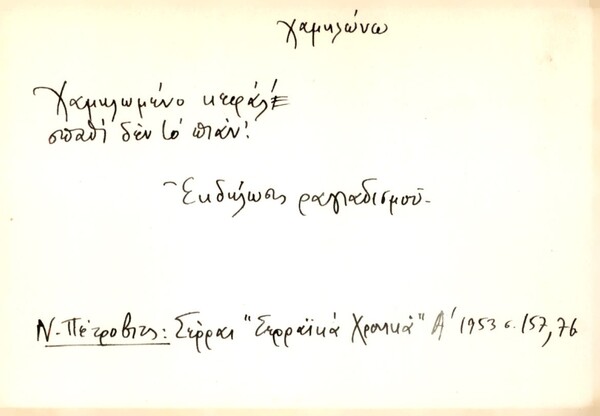 χαμηλώνω
Χαμηλωμένο κεφάλι
σπαθί δὲν τό πιάν'.
Ἐκδήλωσις ραγιαδισμοῦ-
Ν. Πέτροβιτς: Σέρραι "Σερραϊκά Χρονικά" Α' 1953 σ. 157, 76